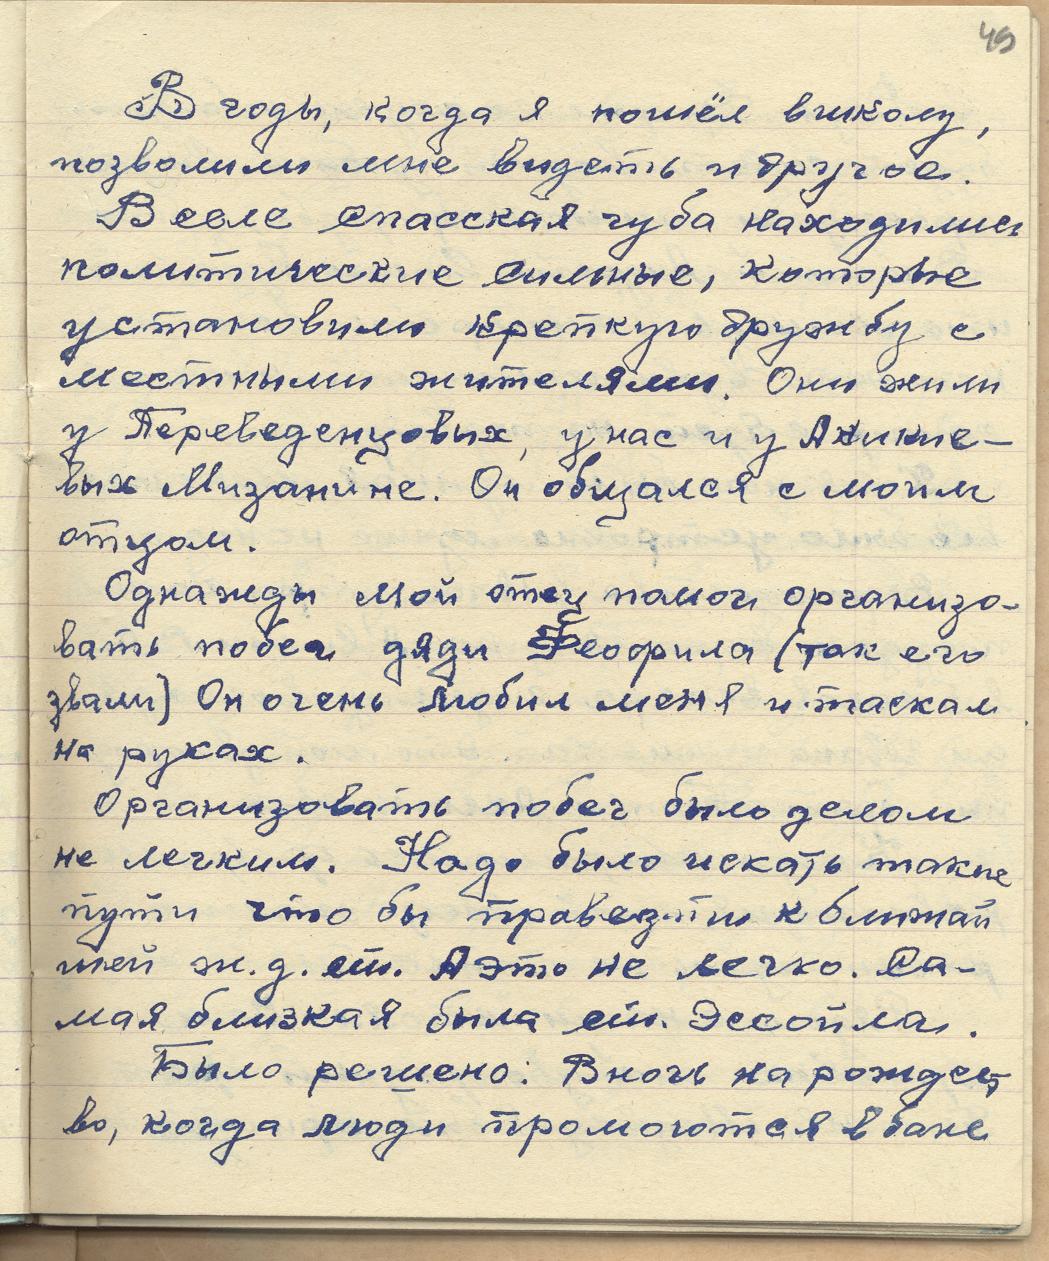 49
В годы, когда я пошёл вшколу,
позволили мне видеть и другое.
В селе Спасская губа находились
политические сильные, которые
установили крепкую дружбу с
местными жителями. Они жили
у Переведенцовых, у нас и у Аники-
вых Мизанине. Он общался с моим
отцом.
Однажды мой отец помог организо-
вать побег дяди Феофила (так его
звали) Он очень любил меня и таскал
на руках.
Организовать побег было делом
не легким. Надо было искать такие
пути что бы провезти к ближай
шей ж.д. ст. Аэто не легко. Са-
мая близкая была ст. Эссойла.
Было решено: Вночь на рождест
во, когда люди промоются в бане